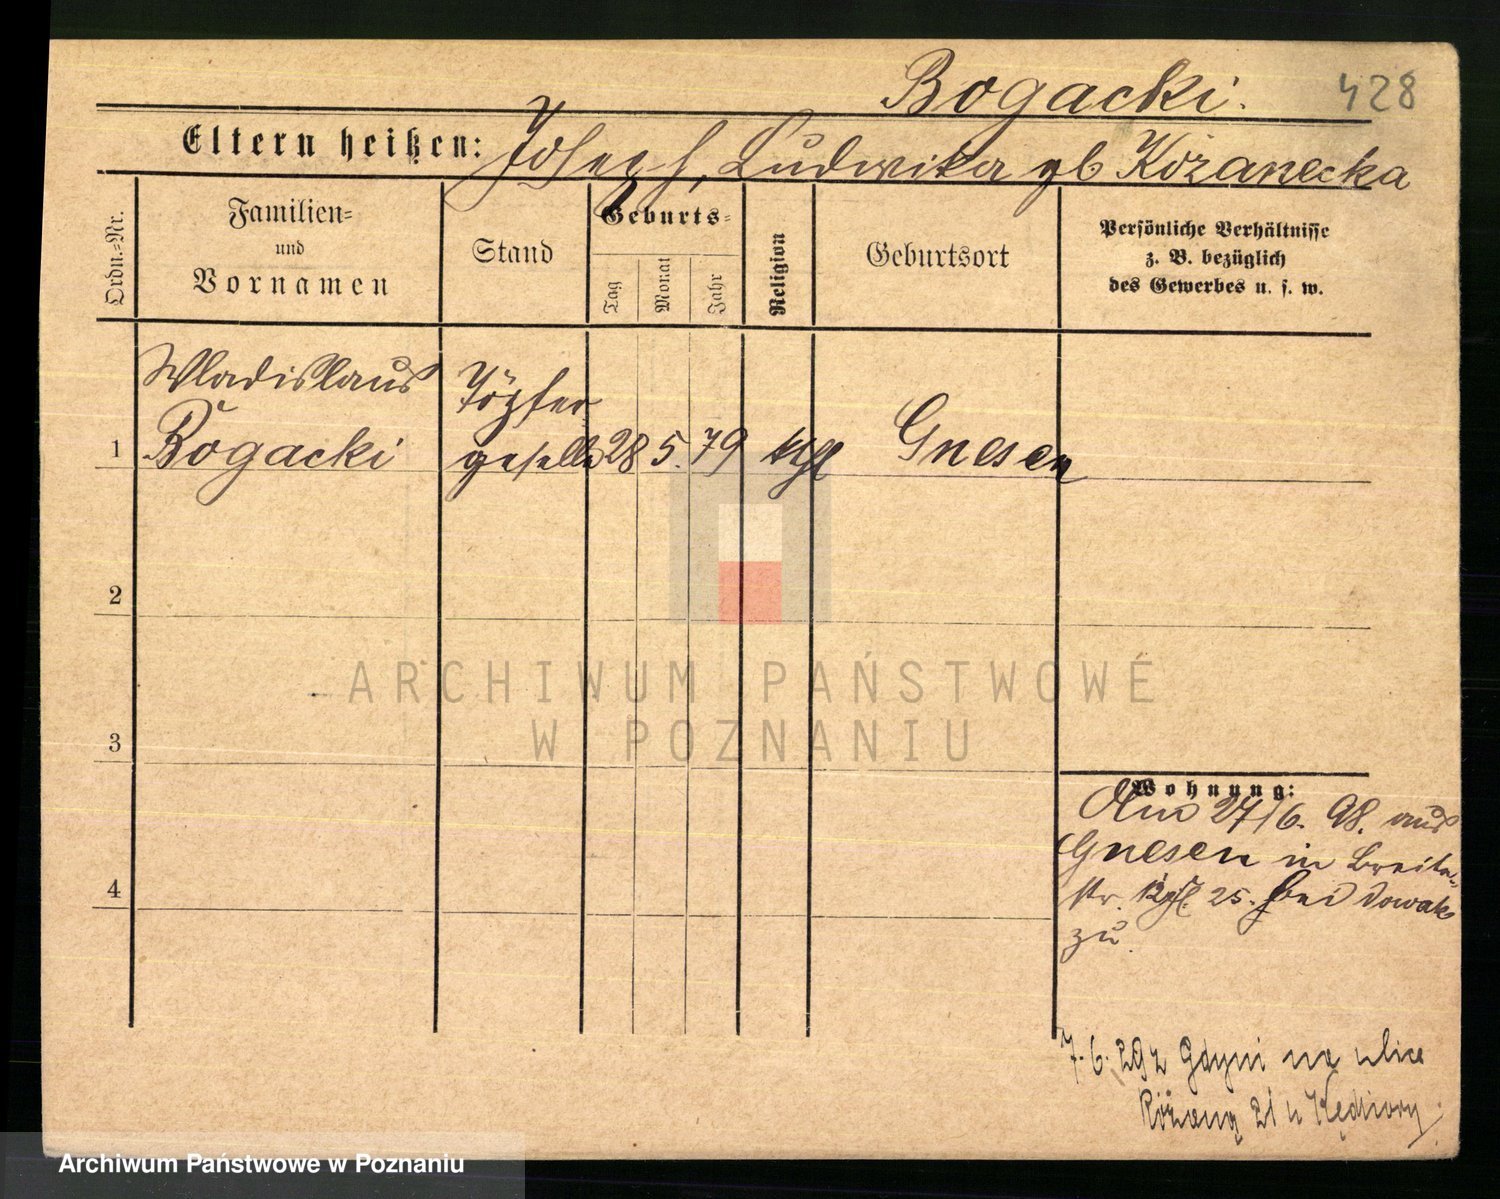 Bogacki. 428
Eltern heißen: Joseph, Ludwika gb Kożanecka
Ordn.=Nr.
Familien=
und
Vornamen
Stand
Geburts=
Tag
Monat
Jahr
Religion
Geburtsort
Persönliche Verhältnisse
z. B. bezüglich
des Gewerbes u. s. w.
Wladislaus Töpfer
1 Bogacki geselle 28 5. 79 kthl Gnesen
2
3
4
Wohnung:
Am 27/6. 98. aus
Gnesen in Breite-
str. 25. bei Nowak
zu.
7.6.29 z Gdyni na ulicę
Różaną 21 u
ARCHIWUM PAŃSTWOWE
W POZNANIU
Archiwum Państwowe w Poznaniu